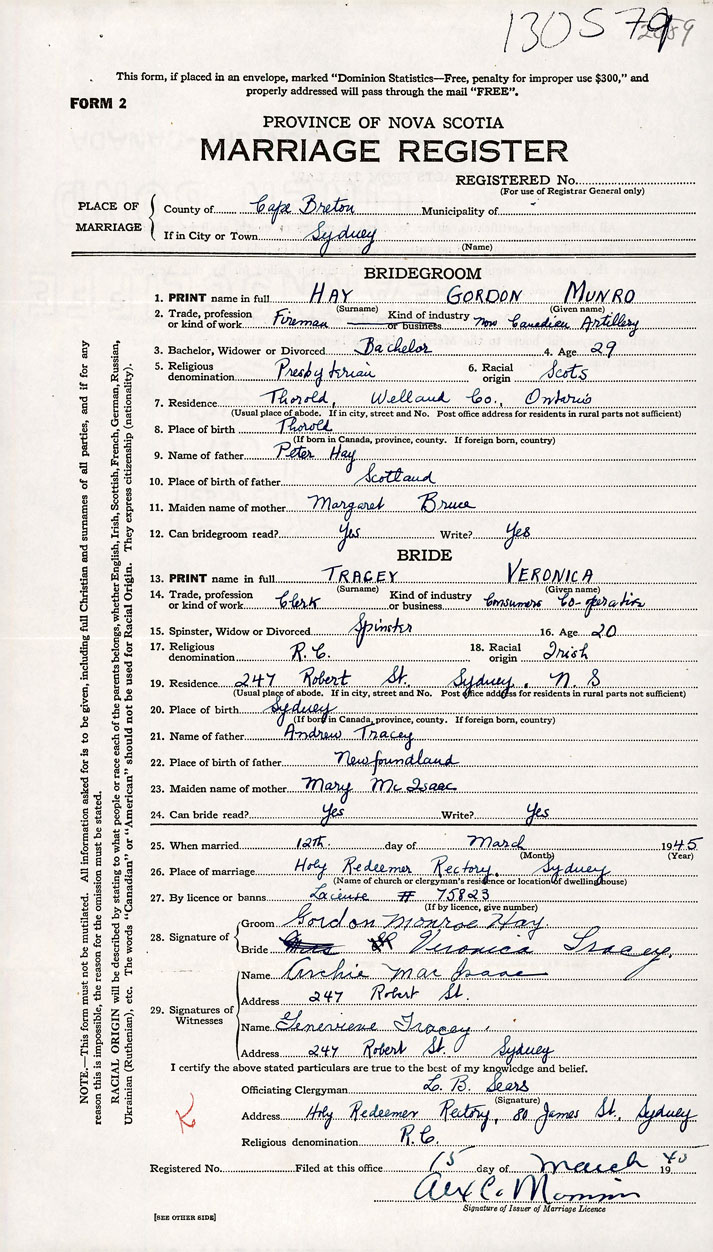 130579
This form, if placed in an envelope, marked "Dominion Statistics—Free, penalty for improper use $300," and
properly addressed will pass through the mail "FREE".
FORM 2
PROVINCE OF NOVA SCOTIA
MARRIAGE REGISTER
REGISTERED No.
(For use of Registrar General only)
PLACE OF MARRIAGE
County of Cape Breton Municipality of
If in City or Town Sydney
(Name)
BRIDEGROOM
1. PRINT name in full HAY GORDON MUNRO
(Surname) (Given name)
2. Trade, profession or kind of work Fireman Kind of industry or business now Canadian Artillery
3. Bachelor, Widower or Divorced Bachelor 4. Age 29
5. Religious denomination Presbyterian 6. Racial origin Scots
7. Residence Thorold, Welland Co., Ontario
(Usual place of abode. If in city, street and No. Post office address for residents in rural parts not sufficient)
8. Place of birth Thorold
(If born in Canada, province, county. If foreign born, country)
9. Name of father Peter Hay
10. Place of birth of father Scotland
11. Maiden name of mother Margaret Bruce
12. Can bridegroom read? Yes Write? Yes
BRIDE
13. PRINT name in full TRACEY VERONICA
(Surname) (Given name)
14. Trade, profession or kind of work Clerk Kind of industry or business Consumers Co-operative
15. Spinster, Widow or Divorced Spinster 16. Age 20
17. Religious denomination R.C. 18. Racial origin Irish
19. Residence 247 Robert St. Sydney, N.S
(Usual place of abode. If in city, street and No. Post office address for residents in rural parts not sufficient)
20. Place of birth Sydney
(If born in Canada, province, county. If foreign born, country)
21. Name of father Andrew Tracey
22. Place of birth of father Newfoundland
23. Maiden name of mother Mary McIsaac
24. Can bride read? Yes Write? Yes
25. When married 12th. day of March 1945
(Month) (Year)
26. Place of marriage Holy Redeemer Rectory, Sydney
(Name of church or clergyman's residence or location of dwelling house)
27. By licence or banns License # 75823
(If by licence, give number)
28. Signature of
Groom Gordon Monroe Hay.
Bride Veronica Tracey.
29. Signatures of Witnesses
Name Archie MacIsaac
Address 247 Robert St.
Name Genevieve Tracey.
Address 247 Robert St. Sydney
I certify the above stated particulars are true to the best of my knowledge and belief.
Officiating Clergyman L. B. Sears
(Signature)
Address Holy Redeemer Rectory, 80 James St., Sydney
Religious denomination R.C.
Registered No. Filed at this office 15 day of March 1945
Signature of Issuer of Marriage Licence
[SEE OTHER SIDE]
NOTE.—This form must not be mutilated. All information asked for is to be given, including full Christian and surnames of all parties, and if for any
reason this is impossible, the reason for the omission must be stated.
RACIAL ORIGIN will be described by stating to what people or race each of the parents belongs, whether English, Irish, Scottish, French, German, Russian,
Ukrainian (Ruthenian), etc. The words "Canadian" or "American" should not be used for Racial Origin. They express citizenship (nationality).